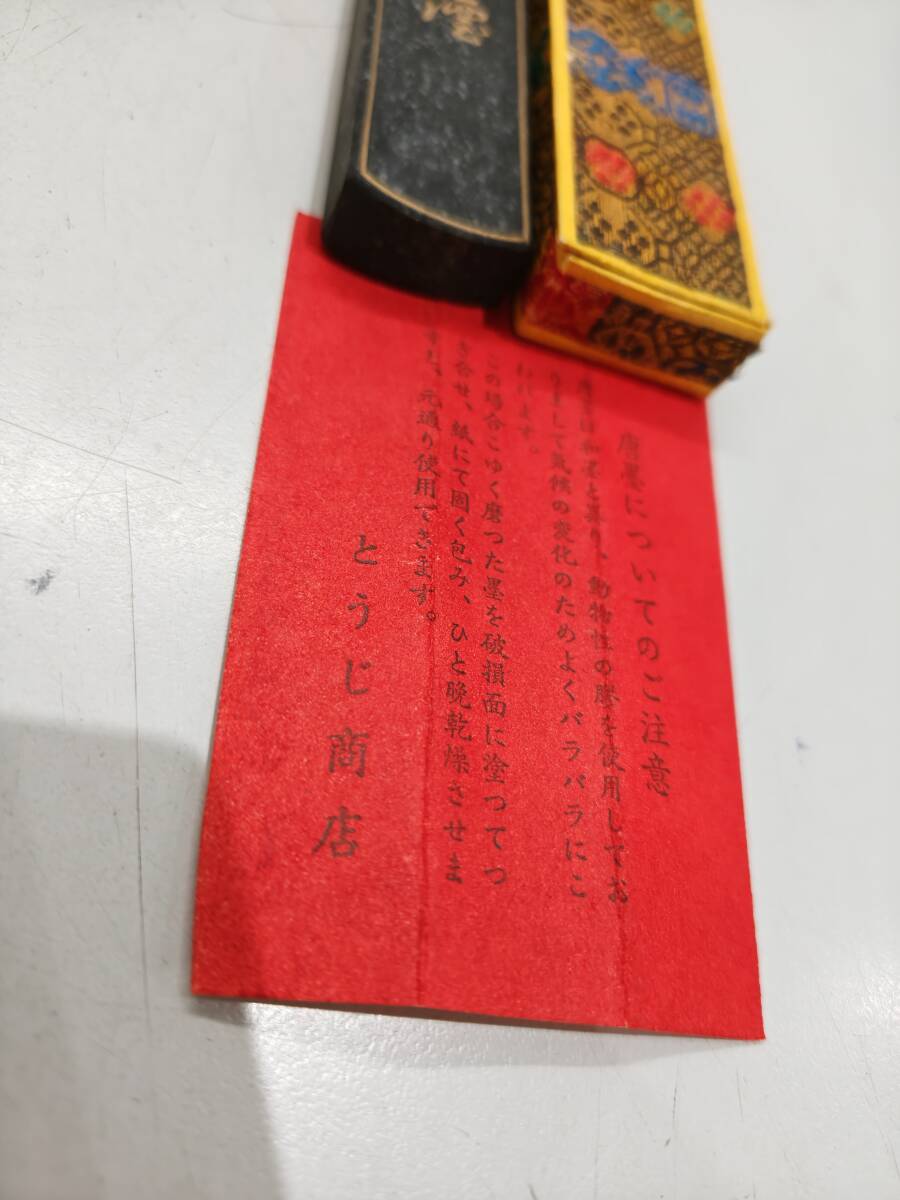 唐墨についてのご注意
唐墨は和墨と異り、動物性の膠を使用してお
りまして気候の変化のためよくバラバラにこ
われます。
この場合こゆく磨つた墨を破損面に塗つてつ
き合せ、紙にて固く包み、ひと晩乾燥させま
すれ、元通り使用できます。
とうじ商店